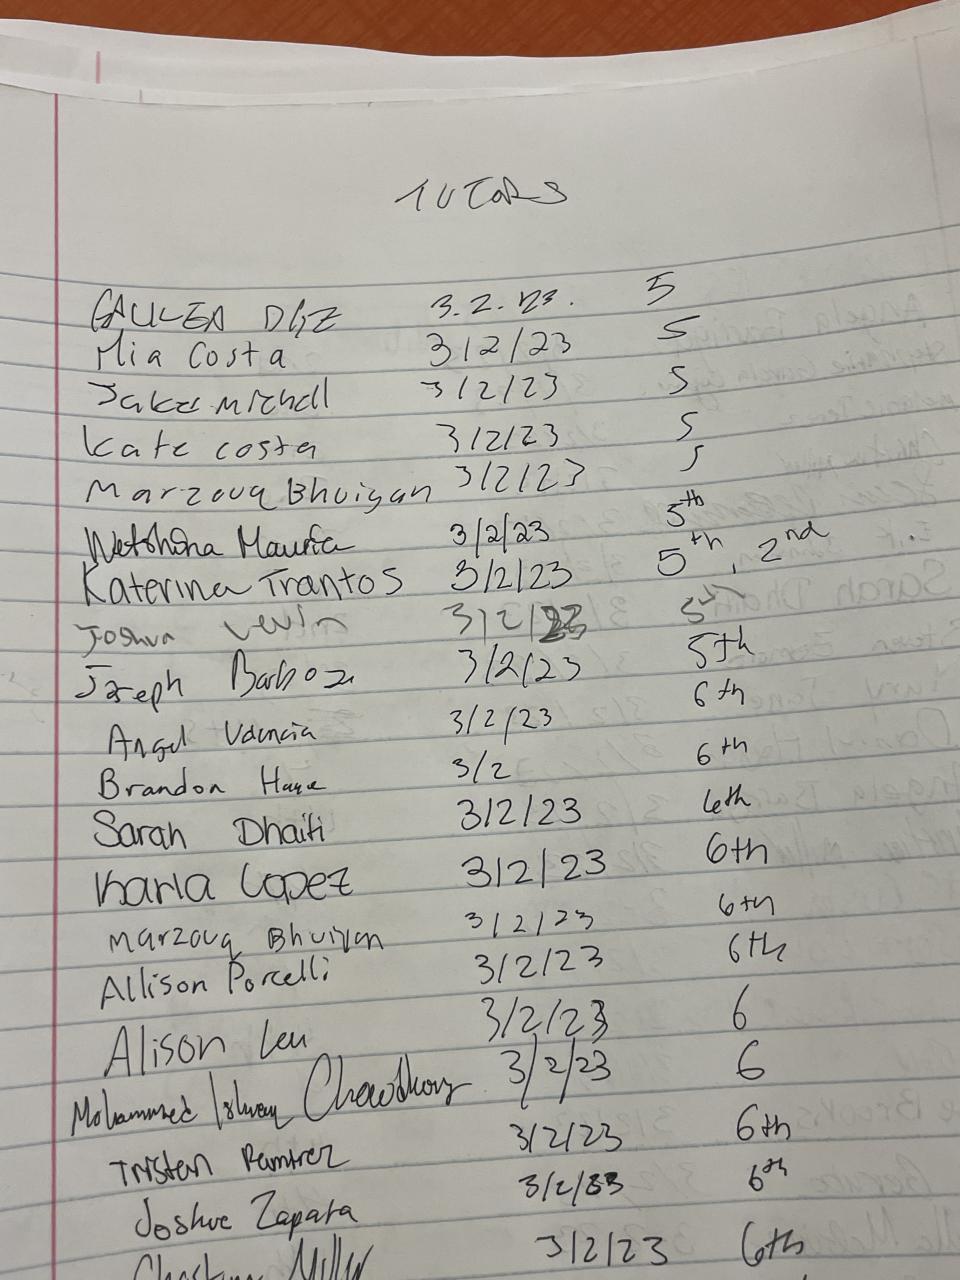 TUTORS
DIAZ 3.2.23. 5
Mia Costa 3/2/23 5
Jake Michell 3/2/23 5
Kate Costa 3/2/23 5
Marzouq Bhuiyan 3/2/23 5
3/2/23 5th
Katerina Trantos 3/2/23 5th, 2nd
Joshua Levin 3/2/23 5th
Joseph Barboza 3/2/23 5th
Angel Valencia 3/2/23 6th
Brandon 3/2 6th
Sarah Dhaiti 3/2/23 6th
Karla Lopez 3/2/23 6th
Marzouq Bhuiyan 3/2/23 6th
Allison Porcelli 3/2/23 6th
Alison Leu 3/2/23 6
Mohammed Chowdhury 3/2/23 6
Tristen Ramirez 3/2/23 6th
Joshue Zapata 3/2/23 6th
Miller 3/2/23 6th